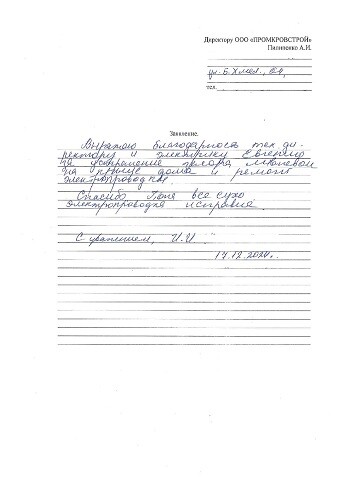 Директору ООО «ПРОМКРОВСТРОЙ»
Пилипенко А.И.
ул. Б. Хмел.,
тел.
Заявление.
Выражаю благодарность тех ди-
ректору и электрику Евгению
за устранение
на крыше дома и ремонт
электропроводки.
Спасибо. Пока все сухо
электропроводка исправна.
С уважением, И.И
17.12.2024г.